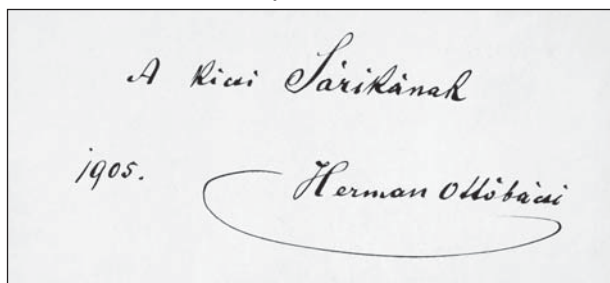 A kicsi Sárikának
1905.
Herman Ottóbácsi